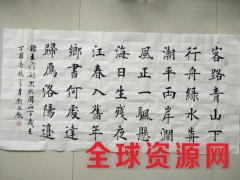 客路青山下
行舟綠水歬
潮平兩岸濶
風正一颿懸
海日生残夜
江春入舊年
鄉書何處達
歸雁洛陽邊
次北固山下
丁酉
全球资源网